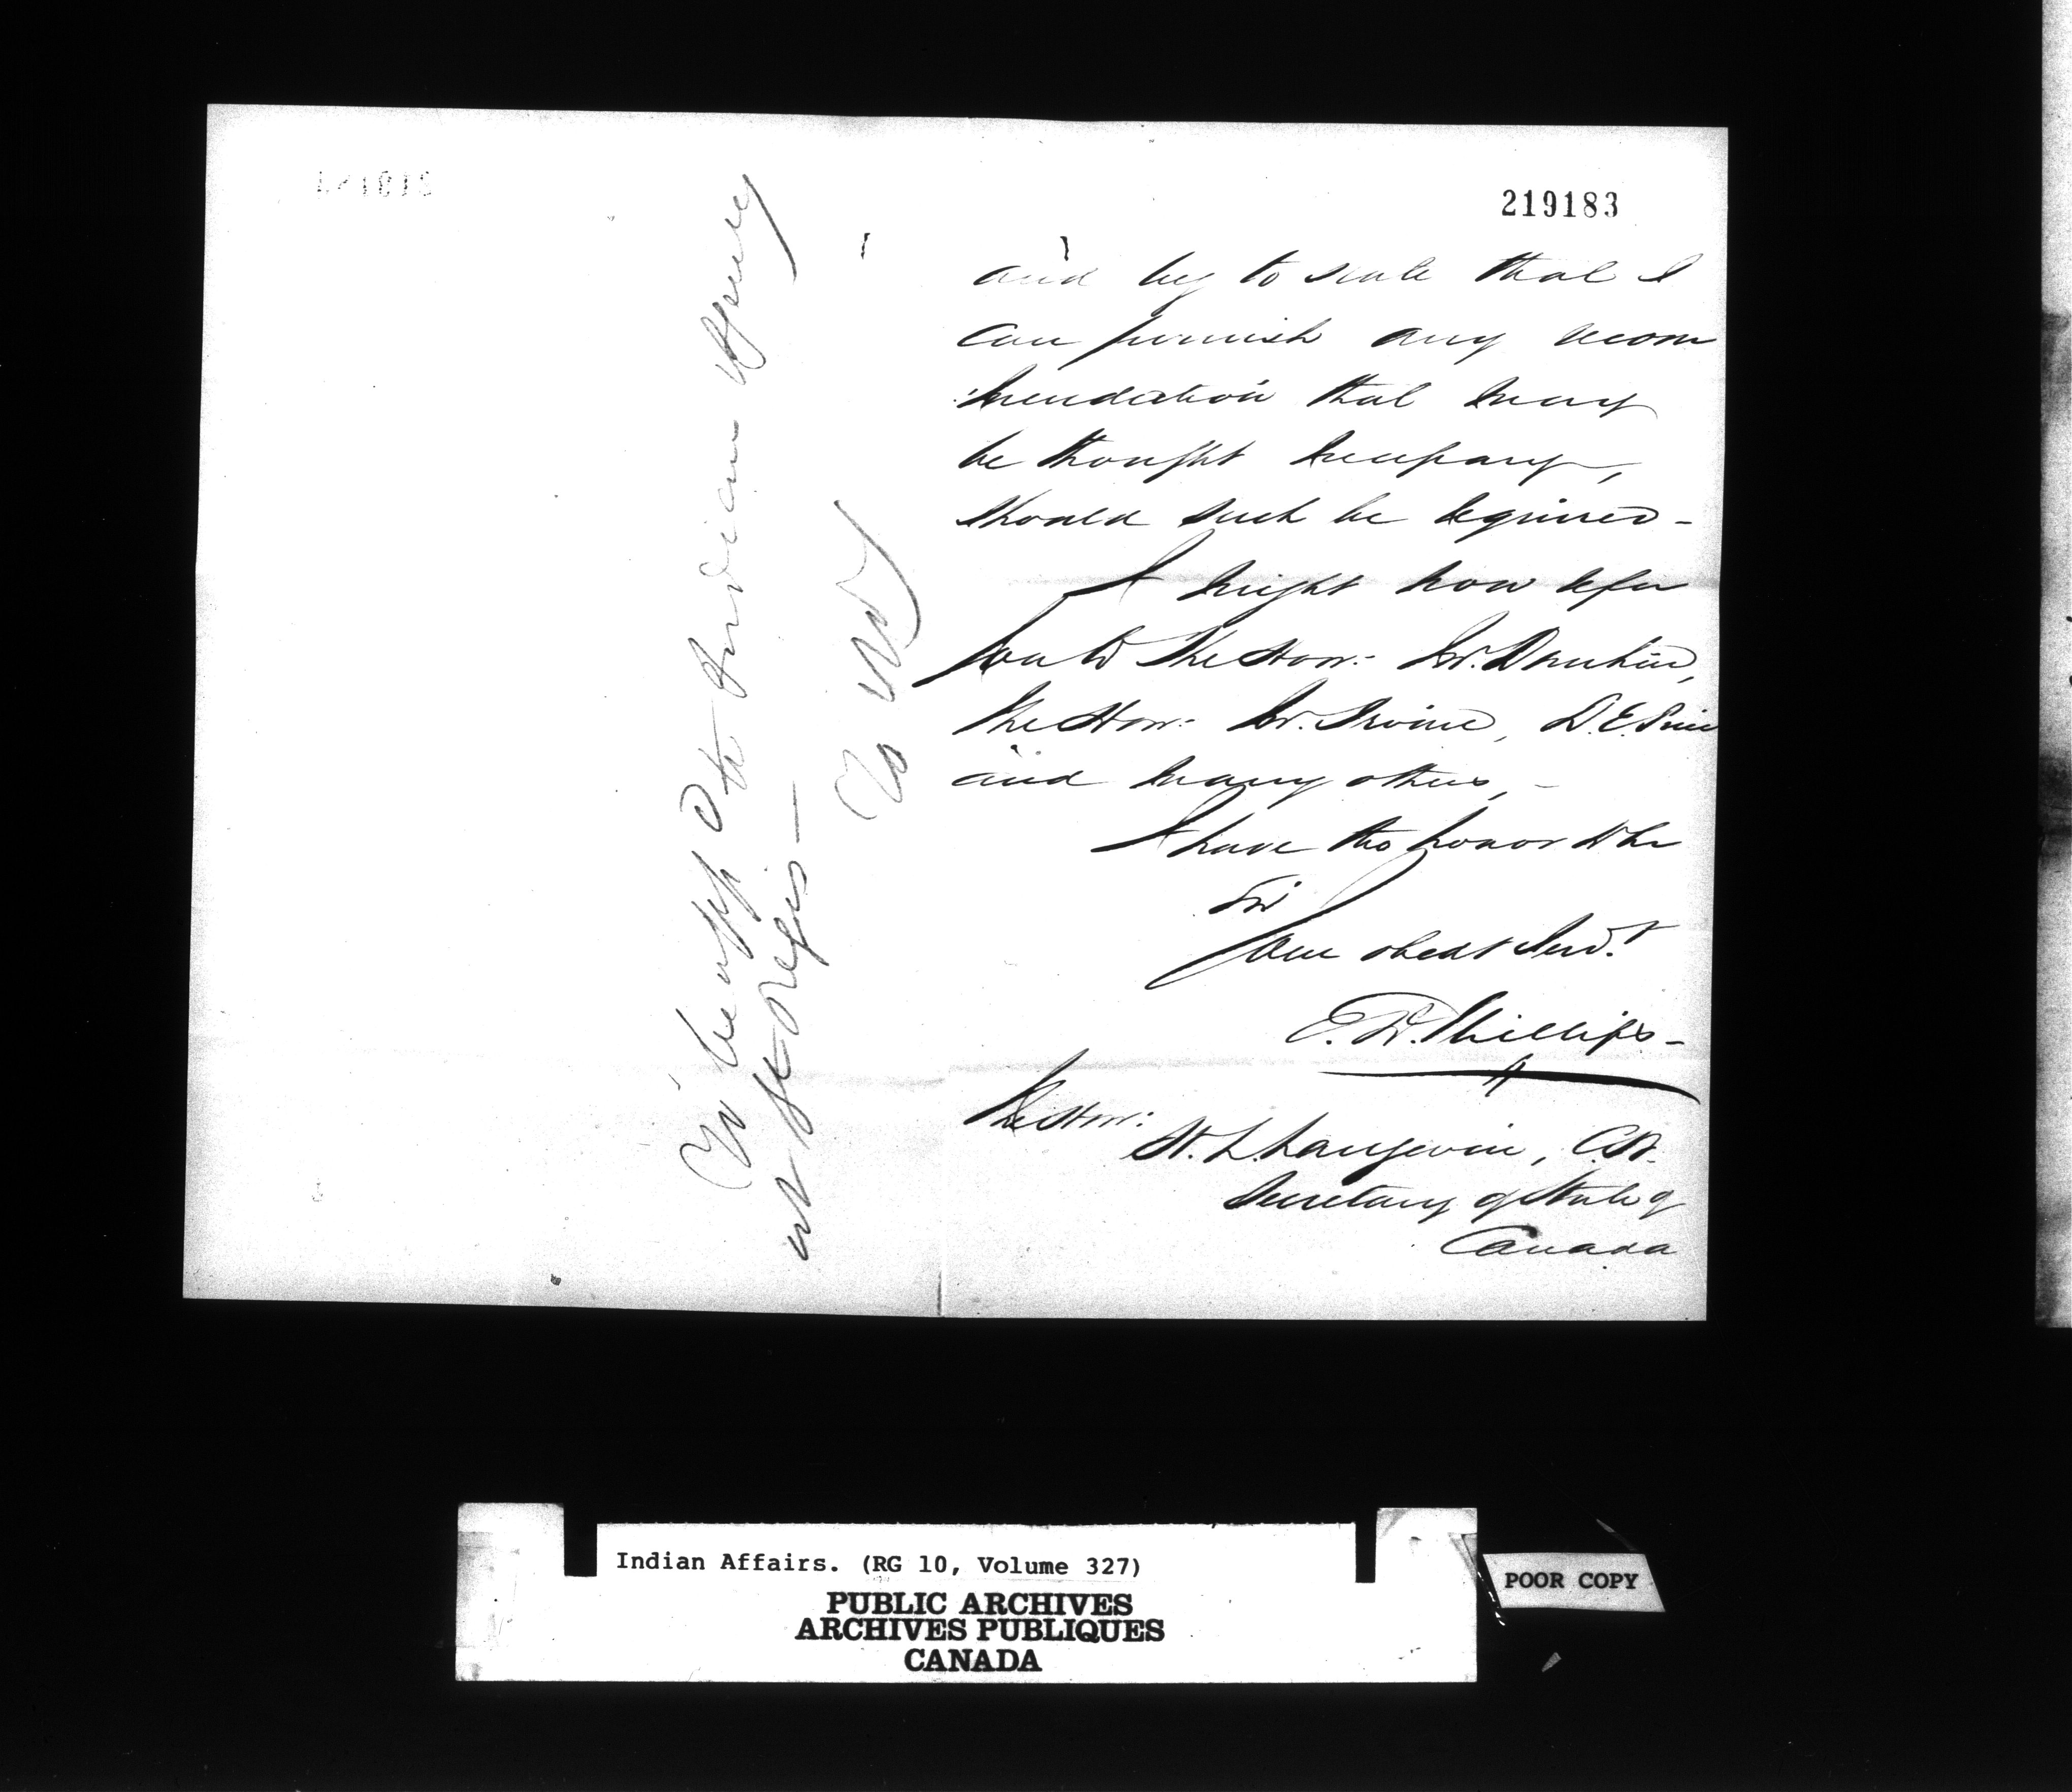 219183
and beg to state that I
can furnish any recom
mendation that may
be thought necessary,
should such be required -
I might now refer
you to The Hon:- Mr. Dunkin,
The Hon:- Mr. Irvine, D. E. Price
and many others, -
I have the honor to be
Sir
Your obedt Servt
E. W. Phillips -
The Hon:
H. L. Langevin, C.B.
Secretary of State of
Canada
To be appd to Indian Agency
at St Regis -
To
Indian Affairs. (RG 10, Volume 327)
PUBLIC ARCHIVES
ARCHIVES PUBLIQUES
CANADA
POOR COPY